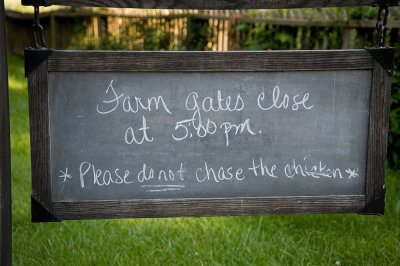 Farm gates close
at 5:00 pm.
* Please do not chase the chicken *